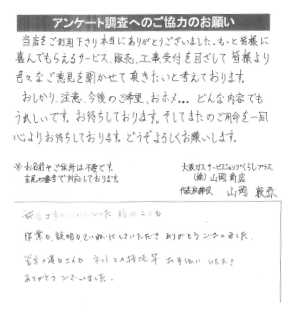 アンケート調査へのご協力のお願い
当店をご利用下さり本当にありがとうございました。もっと皆様に
喜んでもらえるサービス、販売、工事受付を目ざして皆様より
色々なご意見を聞かせて頂きたいと考えております。
おしかり、注意、今後のご希望、おホメ... どんな内容でも
うれしいです。お待ちしております。そしてまたのご用命を一同
心よりお待ちしております。どうぞよろしくお願いします。
※お名前やご住所は不要です。
大阪ガスサービスショップくらしプラス
(株)山岡商店
代表取締役 山岡
作業も、説明もていねいにしていただき ありがとうございました。
お手伝いいただき
ありがとうございました。